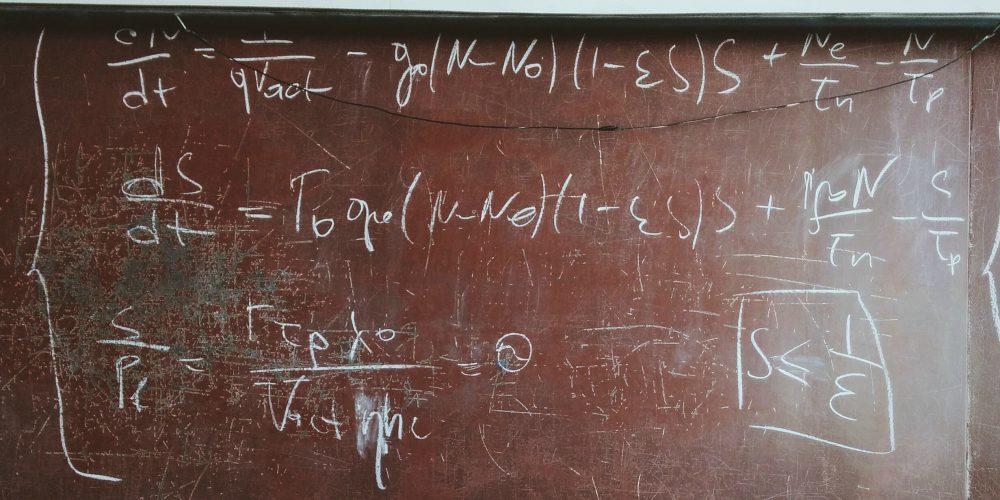 dN/dt = I/qVact - g₀(N-N₀)(1-εS)S + Ne/τn - N/τp
dS/dt = Γ₀ g₀(N-N₀)(1-εS)S + N/τn - S/τp
S/Pf = Γτpλ₀/Vactηhc =
S ≤ 1/ε